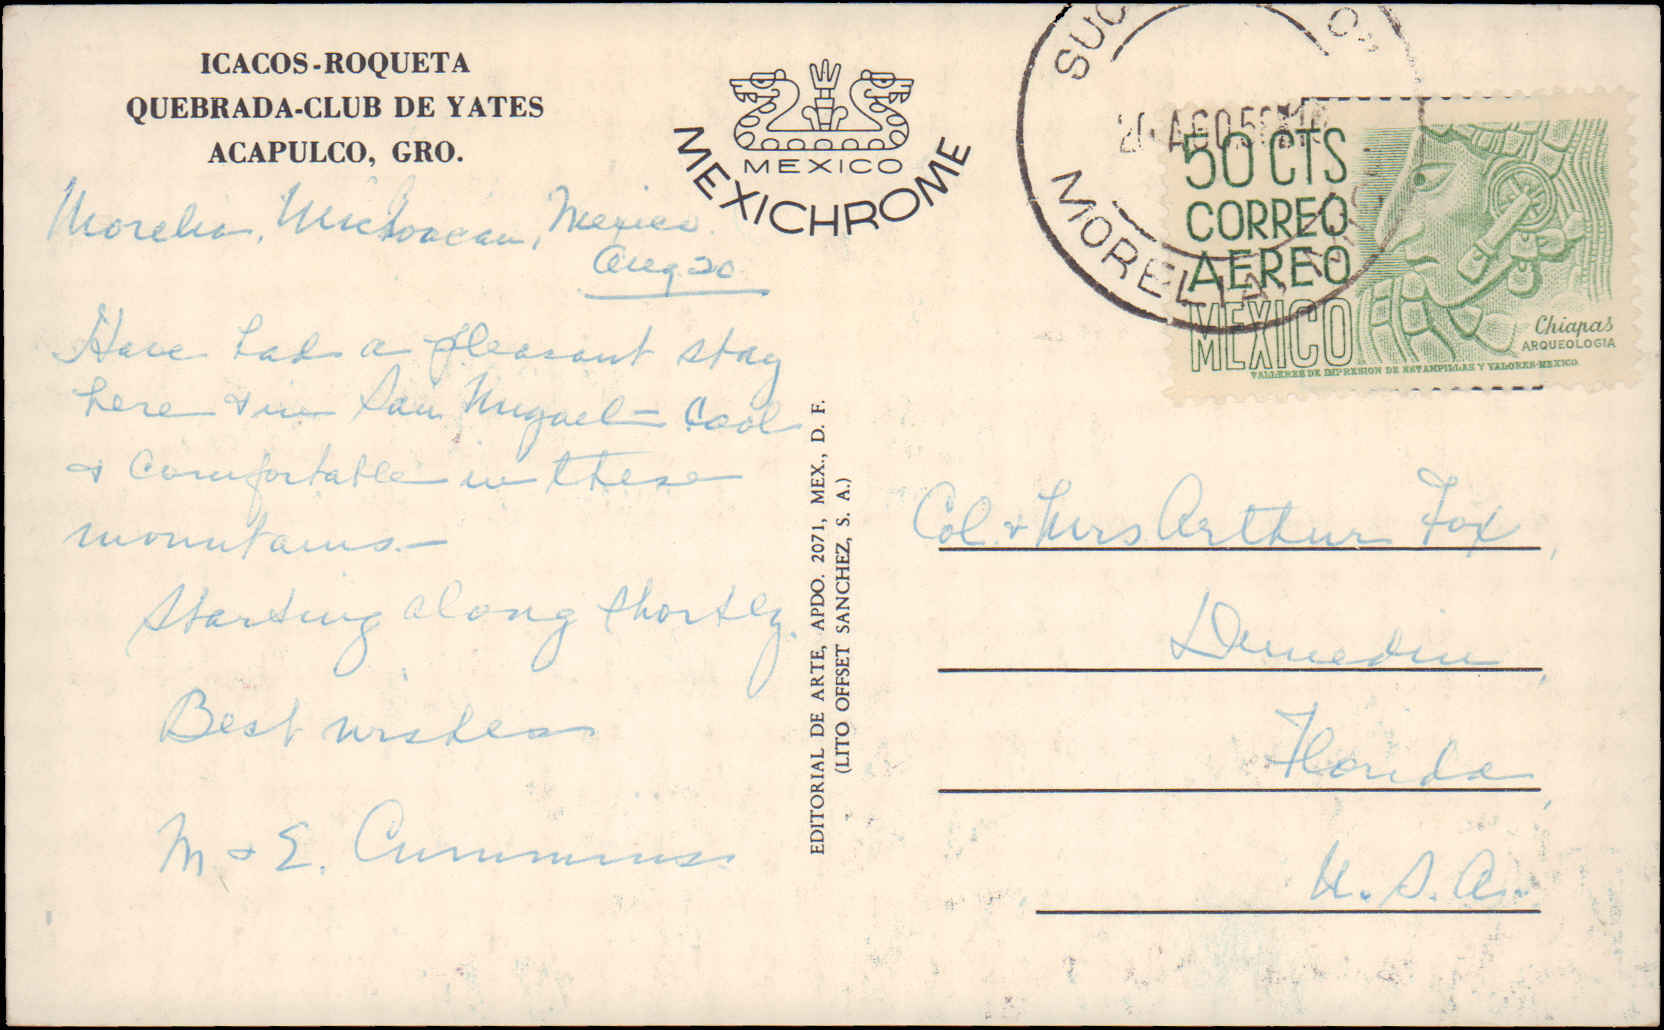 ICACOS-ROQUETA
QUEBRADA-CLUB DE YATES
ACAPULCO, GRO.
MEXICO
MEXICHROME
Morelia, Michoacan, Mexico.
Aug 20
Have had a pleasant stay
here & in San Miguel - Cool
& comfortable in these
mountains. -
Starting along shortly.
Best wishes
M & E. Cummins
EDITORIAL DE ARTE, APDO. 2071, MEX., D. F.
(LITO OFFSET SANCHEZ, S. A.)
SUC
AGO
MORELIA
50 CTS
CORREO
AEREO
MEXICO
Chiapas
ARQUEOLOGIA
TALLERES DE IMPRESION DE ESTAMPILLAS Y VALORES-MEXICO
Col. & Mrs Arthur Fox
Dunedin
Florida
U.S.A.